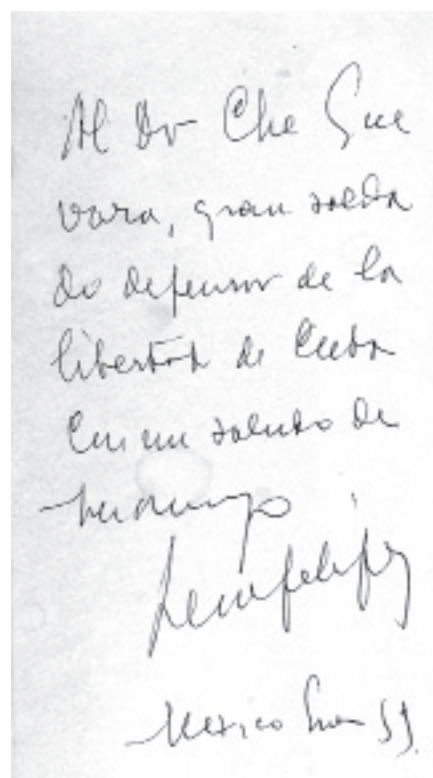 Al Dr Che Gue
vara, gran solda
do defensor de la
libertad de Cuba
Con un saludo de
Leon Felipe
Mexico 59